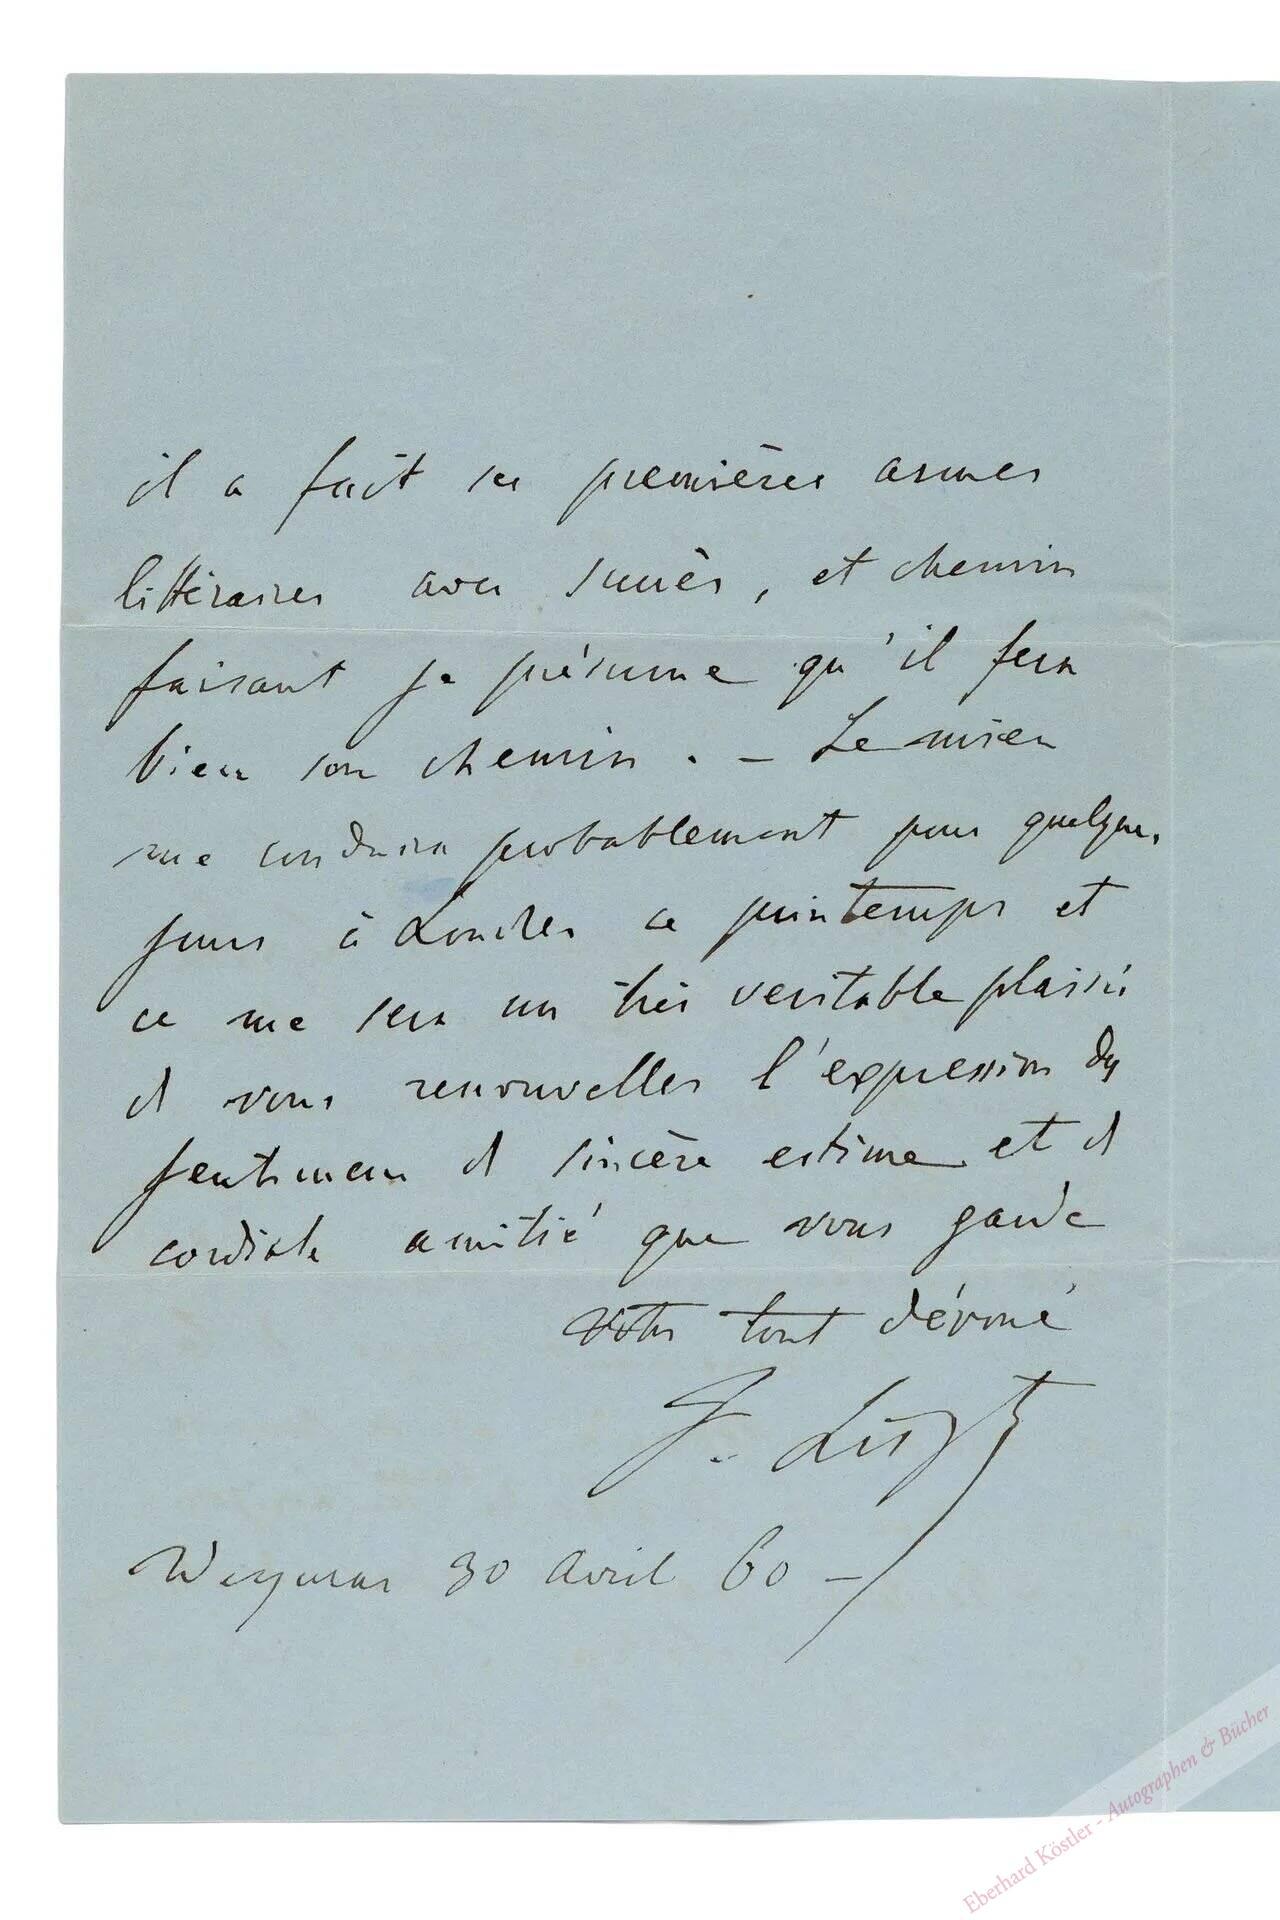 il a fait ses premières armes
littéraires avec succès, et chemin
faisant je présume qu'il fera
bien son chemin. – Le mien
me conduira probablement pour quelques
jours à Londres ce printemps et
ce me sera un très veritable plaisir
de vous renouveller l'expression des
sentimens de sincère estime et de
cordiale amitié que vous garde
votre tout dévoué
F. Liszt
Weymar 30 Avril 60 –
Eberhard Köstler - Autographen & Bücher